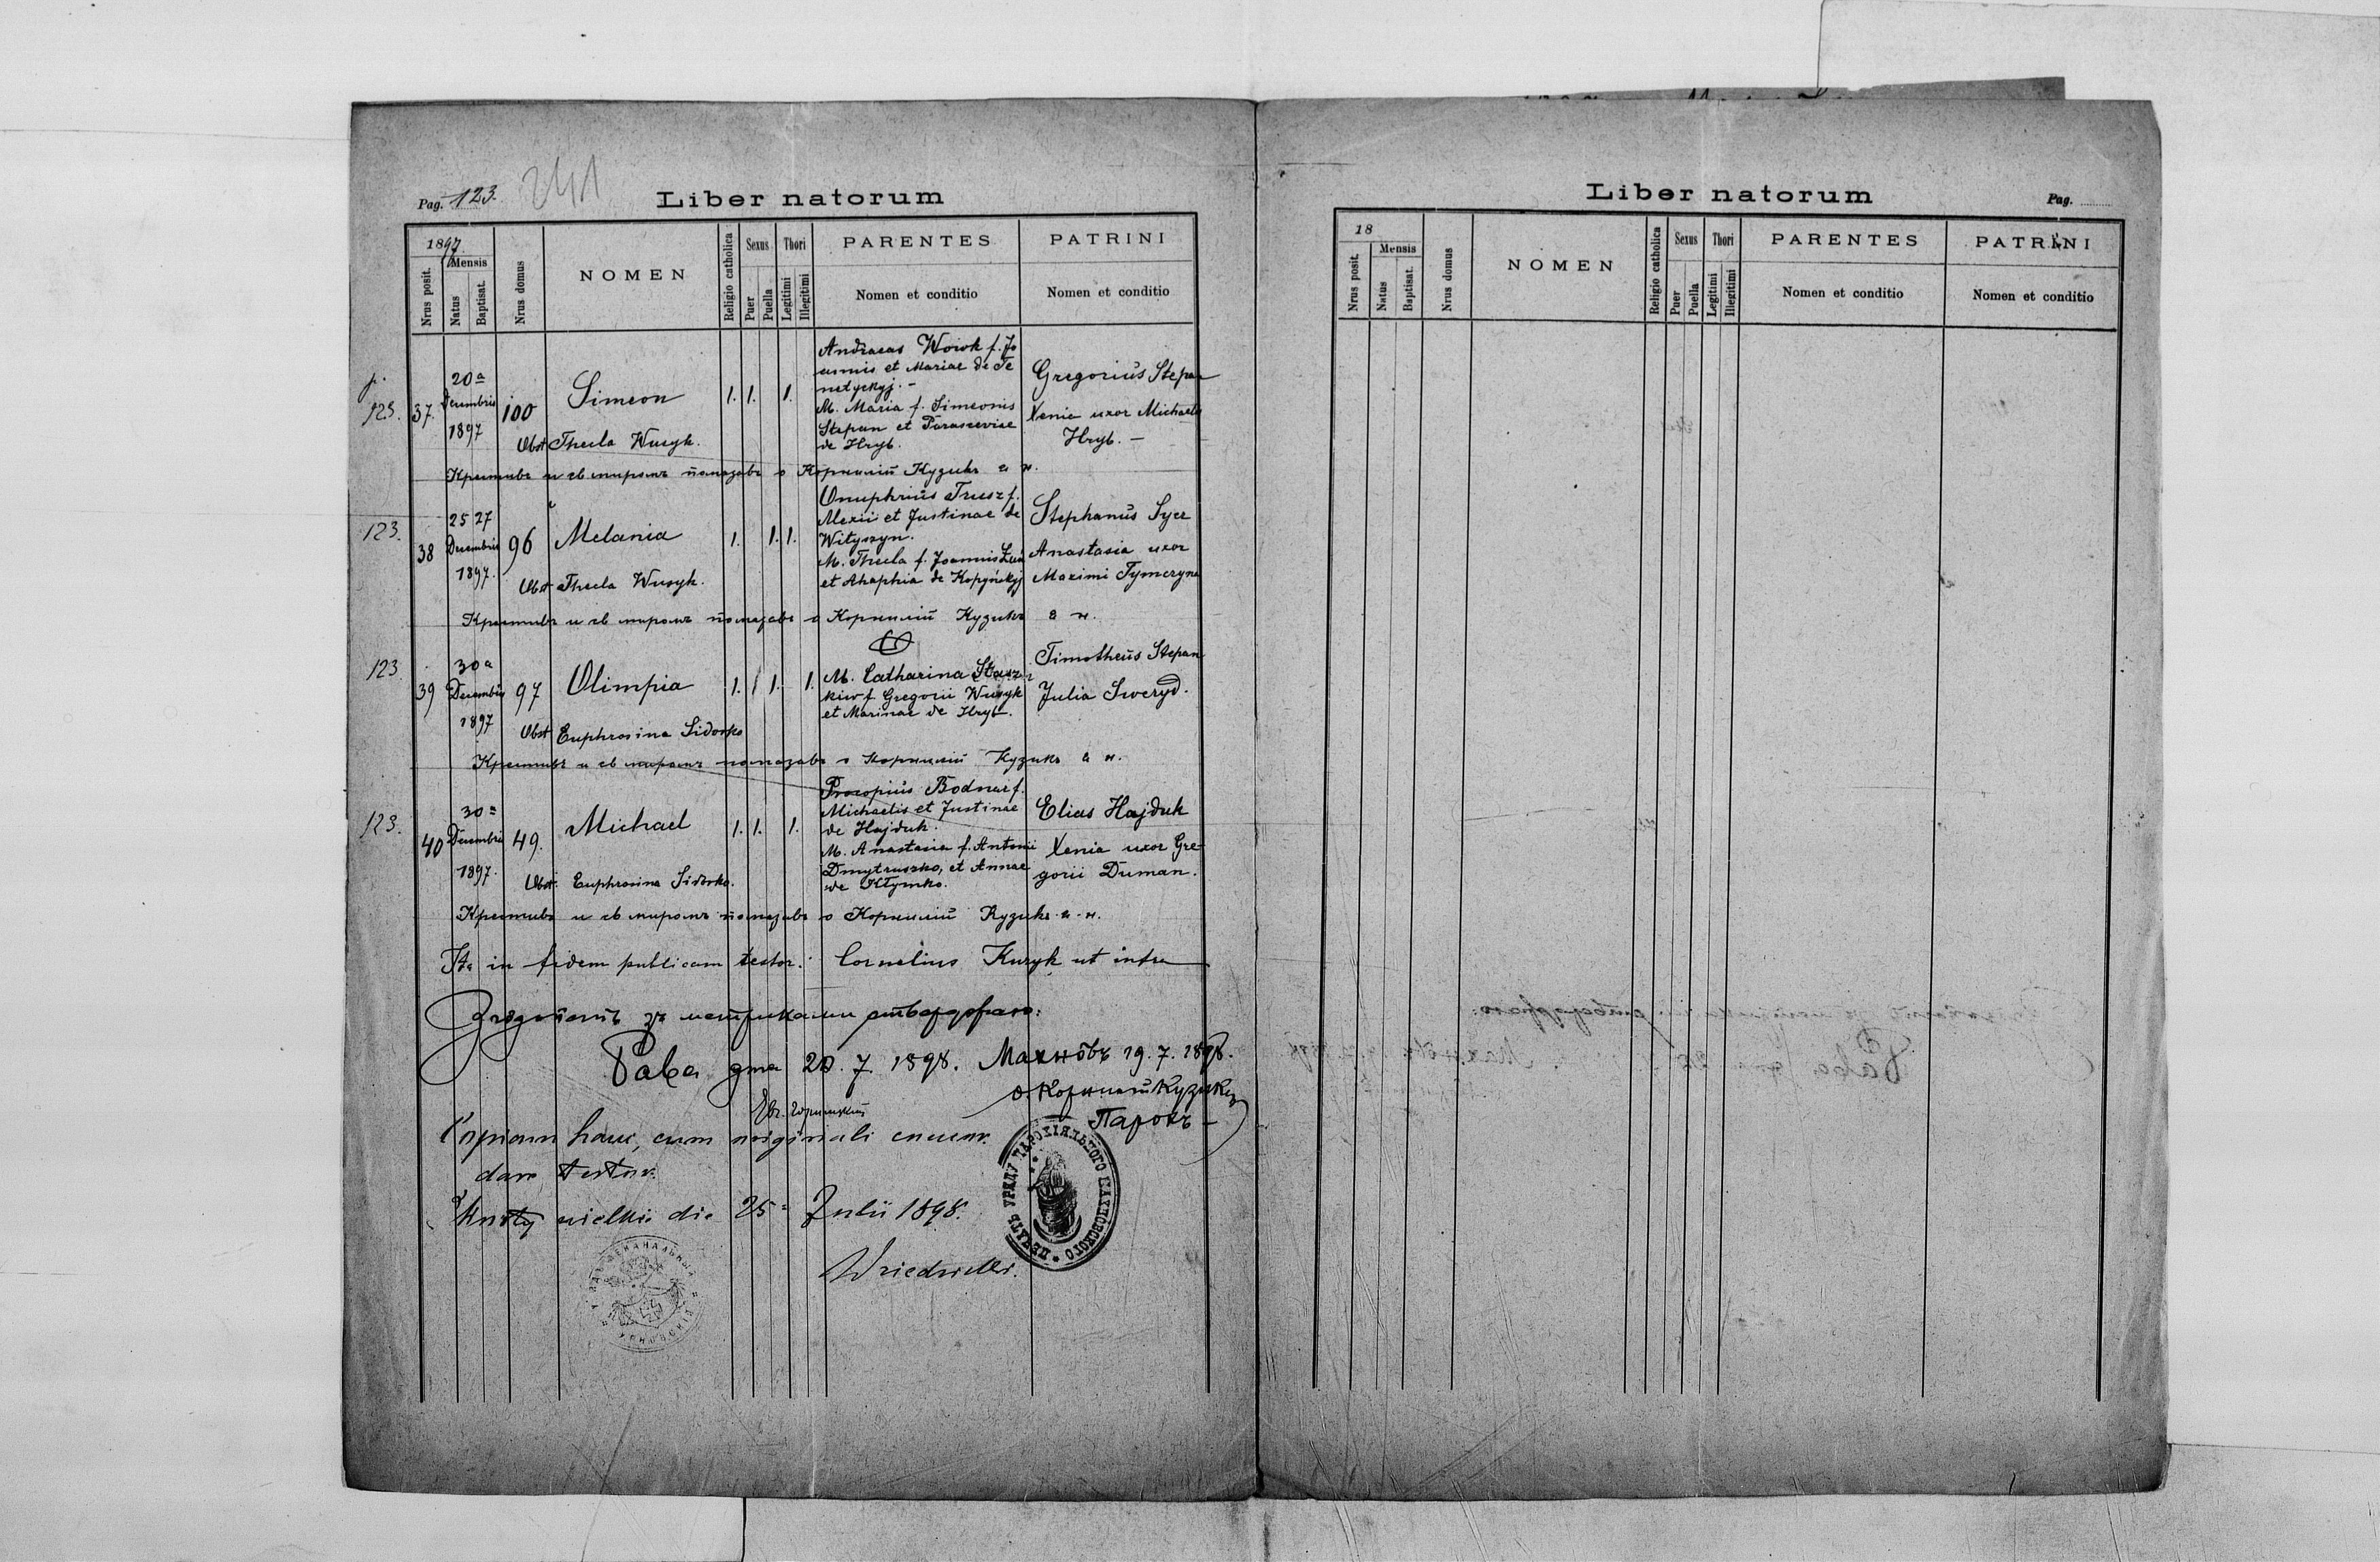 Pag. 123. 241
Liber natorum
1897.
Nrus posit.
Mensis
Natus
Baptisat.
Nrus domus
NOMEN
Religio catholica
Sexus
Puer
Puella
Thori
Legitimi
Illegitimi
PARENTES
Nomen et conditio
PATRINI
Nomen et conditio
p.
123. 37. 20a Decembris 1897 100 Simeon 1. 1. 1.
Obst Thecla Wusyk.
Andreas Worok f. Jo
annis et Mariae de Te
netyckyj. -
M. Maria f. Simeonis
Stepan et Parasceviae
de Hryb.
Gregorius Stepan
Xenia uxor Michaelis
Hryb. -
Крестивъ и св мυромъ помазавъ о Корнилій Кузикъ
123. 38 25 27 Decembris 1897. 96 Melania 1. 1. 1.
Obst Thecla Wusyk.
Onuphrius Trusz f.
Alexii et Justinae de
Wityszyn.
M. Thecla f. Joannis
et Ahaphia de Kopyńckyj
Stephanus Sycz
Anastasia uxor
Maximi Tymczyna
Крестивъ и св мυромъ помазавъ о Корнилій Кузикъ
123 39 30a Decembris 1897 97 Olimpia 1. 1 1. 1.
Obst Euphrosina Sidorko
M. Catharina Stasz
kiw f. Gregorii Wusyk
et Marinae de Hryb.
Timotheus Stepan
Julia Sweryd.
Крестивъ и св мυромъ помазавъ о Корнилій Кузикъ
123. 40 30a Decembris 1897. 49. Michael 1. 1. 1.
Obst. Euphrosina Sidorko.
Procopius Bodnar f.
Michaelis et Justinae
de Hajduk.
M. Anastasia f. Antonii
Dmytruszko, et Annae
de Kłymko.
Elias Hajduk
Xenia uxor Gre
gorii Duman.
Крестивъ и св мυромъ помазавъ о Корнилій Кузикъ
Ita in fidem publicam testor. Cornelius Kuzyk ut infra
Згодность зъ метриками стверджаю:
Рава дня 20. 7. 1898. Махнôвъ 19. 7. 1898.
о. Корнилій Кузикъ
Парохъ
Copiam hanc, cum originali concor
dare testor.
die 25a Julii 1898.
ПЕЧАТЬ УРЯДУ ПАРОХІЯЛЬНОГО МАХНОВСКОГО
Liber natorum
Pag.
18
Nrus posit.
Mensis
Natus
Baptisat.
Nrus domus
NOMEN
Religio catholica
Sexus
Puer
Puella
Thori
Legitimi
Illegitimi
PARENTES
Nomen et conditio
PATRINI
Nomen et conditio